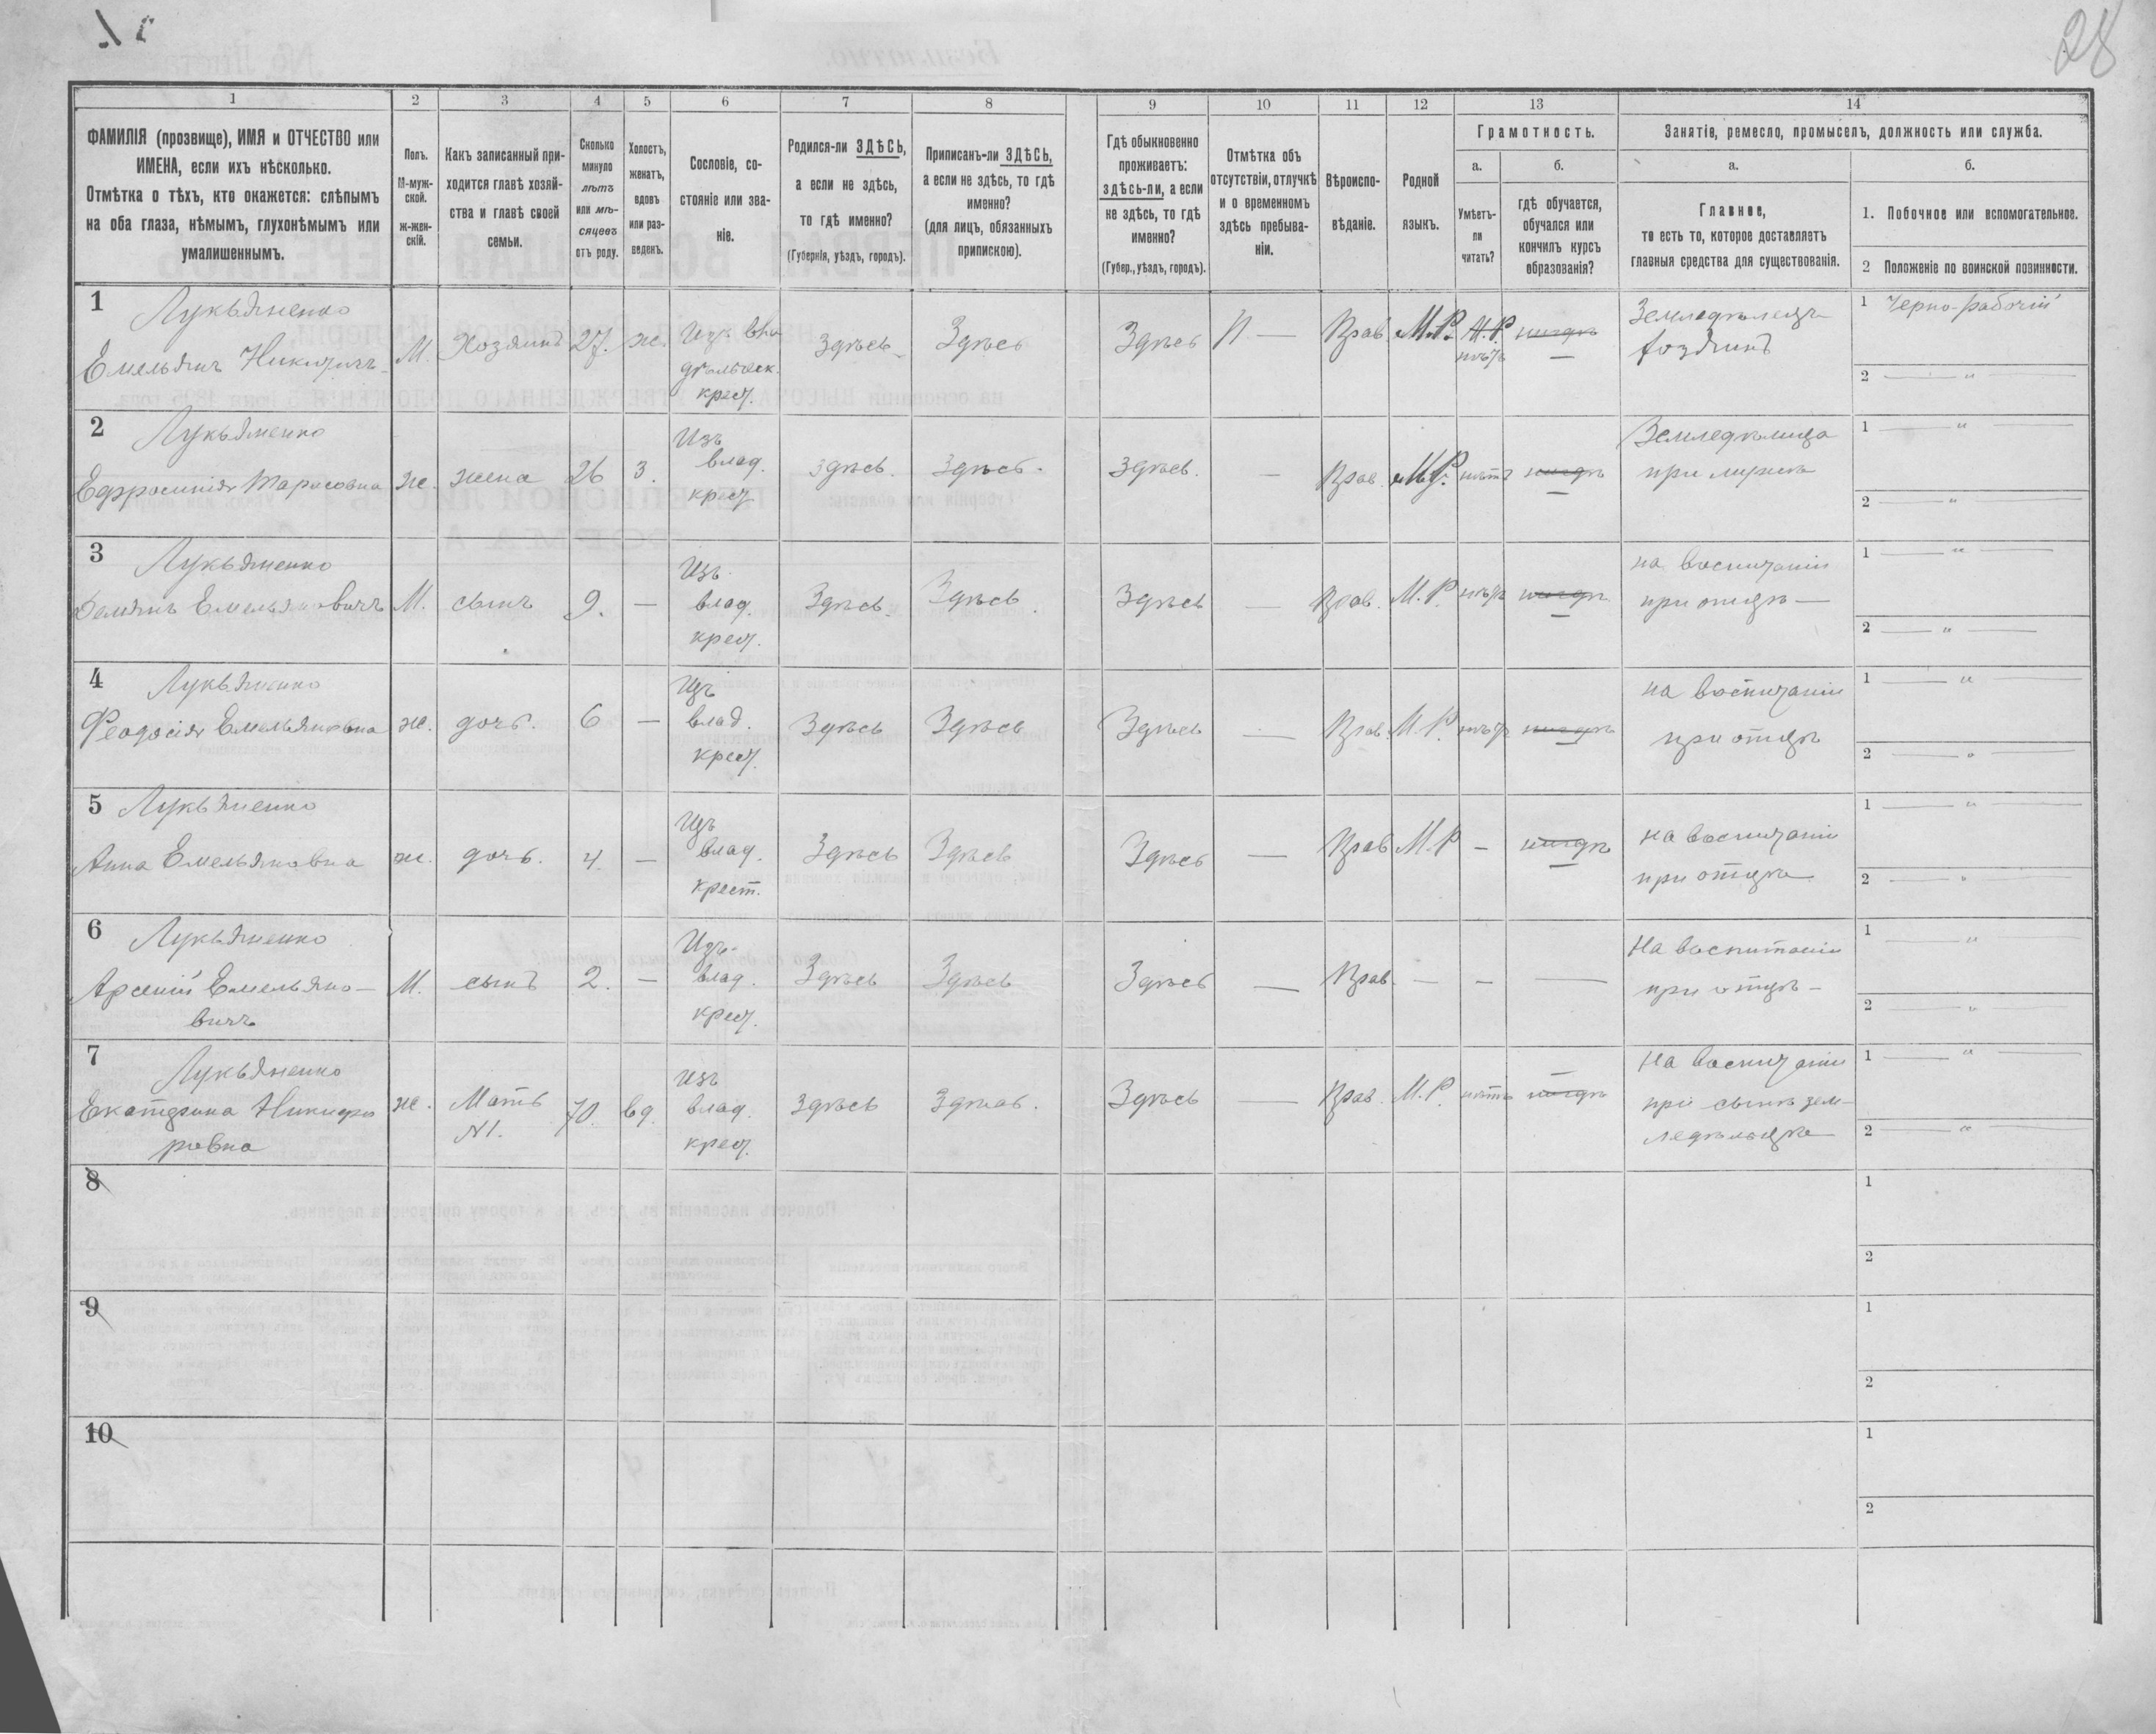 28
1 2 3 4 5 6 7 8 9 10 11 12 13 14
ФАМИЛІЯ (прозвище), ИМЯ и ОТЧЕСТВО или
ИМЕНА, если ихъ нѣсколько.
Отмѣтка о тѣхъ, кто окажется: слѣпымъ
на оба глаза, нѣмымъ, глухонѣмымъ или
умалишеннымъ.
Полъ.
М-муж-
ской.
ж-жен-
скій.
Какъ записанный при-
ходится главѣ хозяй-
ства и главѣ своей
семьи.
Сколько
минуло
лѣтъ
или мѣ-
сяцевъ
отъ роду.
Холостъ,
женатъ,
вдовъ
или раз-
веденъ.
Сословіе, со-
стояніе или зва-
ніе.
Родился-ли ЗДѢСЬ,
а если не здѣсь,
то гдѣ именно?
(Губернія, уѣздъ, городъ).
Приписанъ-ли ЗДѢСЬ,
а если не здѣсь, то гдѣ
именно?
(для лицъ, обязанныхъ
припискою).
Гдѣ обыкновенно
проживаетъ:
здѣсь-ли, а если
не здѣсь, то гдѣ
именно?
(Губер., уѣздъ, городъ).
Отмѣтка объ
отсутствіи, отлучкѣ
и о временномъ
здѣсь пребыва-
ніи.
Вѣроиспо-
вѣданіе.
Родной
языкъ.
Грамотность.
а.
Умѣетъ-
ли
читать?
б.
гдѣ обучается,
обучался или
кончилъ курсъ
образованія?
Занятіе, ремесло, промыселъ, должность или служба.
а.
Главное,
то есть то, которое доставляетъ
главныя средства для существованія.
б.
1. Побочное или вспомогательное.
2 Положеніе по воинской повинности.
1 Лукьяненко
Емельянъ Никитичъ М. Хозяинъ 27. ж. Изъ вла
дѣльческ.
крест.
Здѣсь Здѣсь Здѣсь Прав. М.Р. нѣтъ нигдѣ
Земледѣлецъ
хозяинъ
1 Черно-рабочій
2 — „ —
2 Лукьяненко
Ефросинія Тарасовна ж. жена 26 З.
Изъ
влад.
крест
Здѣсь. Здѣсь. Здѣсь. — Прав. М.Р. нѣтъ нигдѣ
Земледѣлица
при мужѣ
1 — „ —
2 — „ —
3 Лукьяненко
Демянъ Емельяновичъ М. сынъ 9. —
Изъ
влад.
крест.
Здѣсь Здѣсь. Здѣсь — Прав. М.Р. нѣтъ нигдѣ
на воспитаніи
при отцѣ —
1 — „ —
2 — „ —
4 Лукьяненко
Феодосія Емельяновна ж. дочь. 6 —
Изъ
влад.
крест.
Здѣсь Здѣсь Здѣсь — Прав. М.Р. нѣтъ нигдѣ
на воспитаніи
при отцѣ
1 — „ —
2 — „ —
5 Лукьяненко
Анна Емельяновна ж. дочь. 4 —
Изъ
влад.
крест.
Здѣсь Здѣсь Здѣсь — Прав М.Р — нигдѣ
на воспитаніи
при отцѣ
1 — „ —
2 — „ —
6 Лукьяненко
Арсеній Емельяно-
вичъ
М. сынъ 2. —
Изъ
влад.
крест.
Здѣсь Здѣсь Здѣсь — Прав. — — —
На воспитаніи
при отцѣ —
1 — „ —
2 — „ —
7 Лукьяненко
Екатерина Никифо
ровна
ж. Мать
N1.
70. вд.
Изъ
влад.
крест.
Здѣсь Здѣсь. Здѣсь — Прав. М.Р. нѣтъ нигдѣ
На воспитаніи
при сынѣ зем-
ледѣльцѣ
1 — „ —
2 — „ —
8
1
2
9
1
2
10
1
2